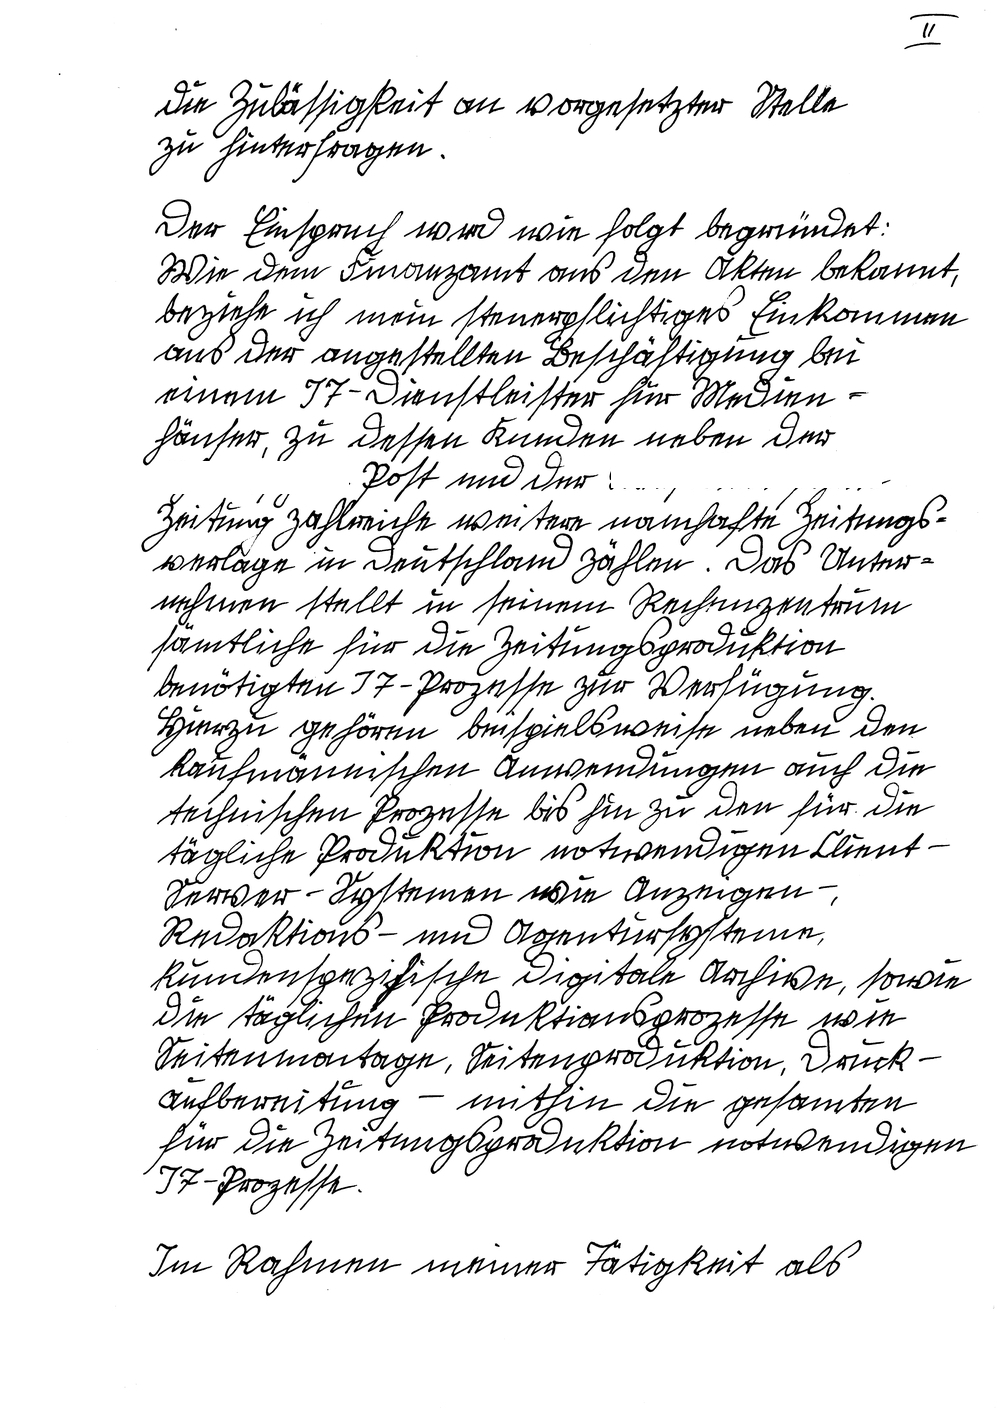 II
die Zulässigkeit an vorgesetzter Stelle
zu hinterfragen.
Der Einspruch wird wie folgt begründet:
Wie dem Finanzamt aus den Akten bekannt,
beziehe ich mein steuerpflichtiges Einkommen
aus der angestellten Beschäftigung bei
einem IT-Dienstleister für Medien=
häuser, zu dessen Kunden neben der
Post und der
Zeitung zahlreiche weitere namhafte Zeitungs=
verlage in Deutschland zählen. Das Unter=
nehmen stellt in seinem Rechenzentrum
sämtliche für die Zeitungsproduktion
benötigten IT-Prozesse zur Verfügung.
Hierzu gehören beispielsweise neben den
kaufmännischen Anwendungen auch die
technischen Prozesse bis hin zu den für die
tägliche Produktion notwendigen Client-
Server-Systemen wie Anzeigen-,
Redaktions- und Agentursysteme,
kundenspezifische digitale Archive, sowie
die täglichen Produktionsprozesse wie
Seitenmontage, Seitenproduktion, Druck-
aufbereitung – mithin die gesamten
für die Zeitungsproduktion notwendigen
IT-Prozesse.
Im Rahmen meiner Tätigkeit als